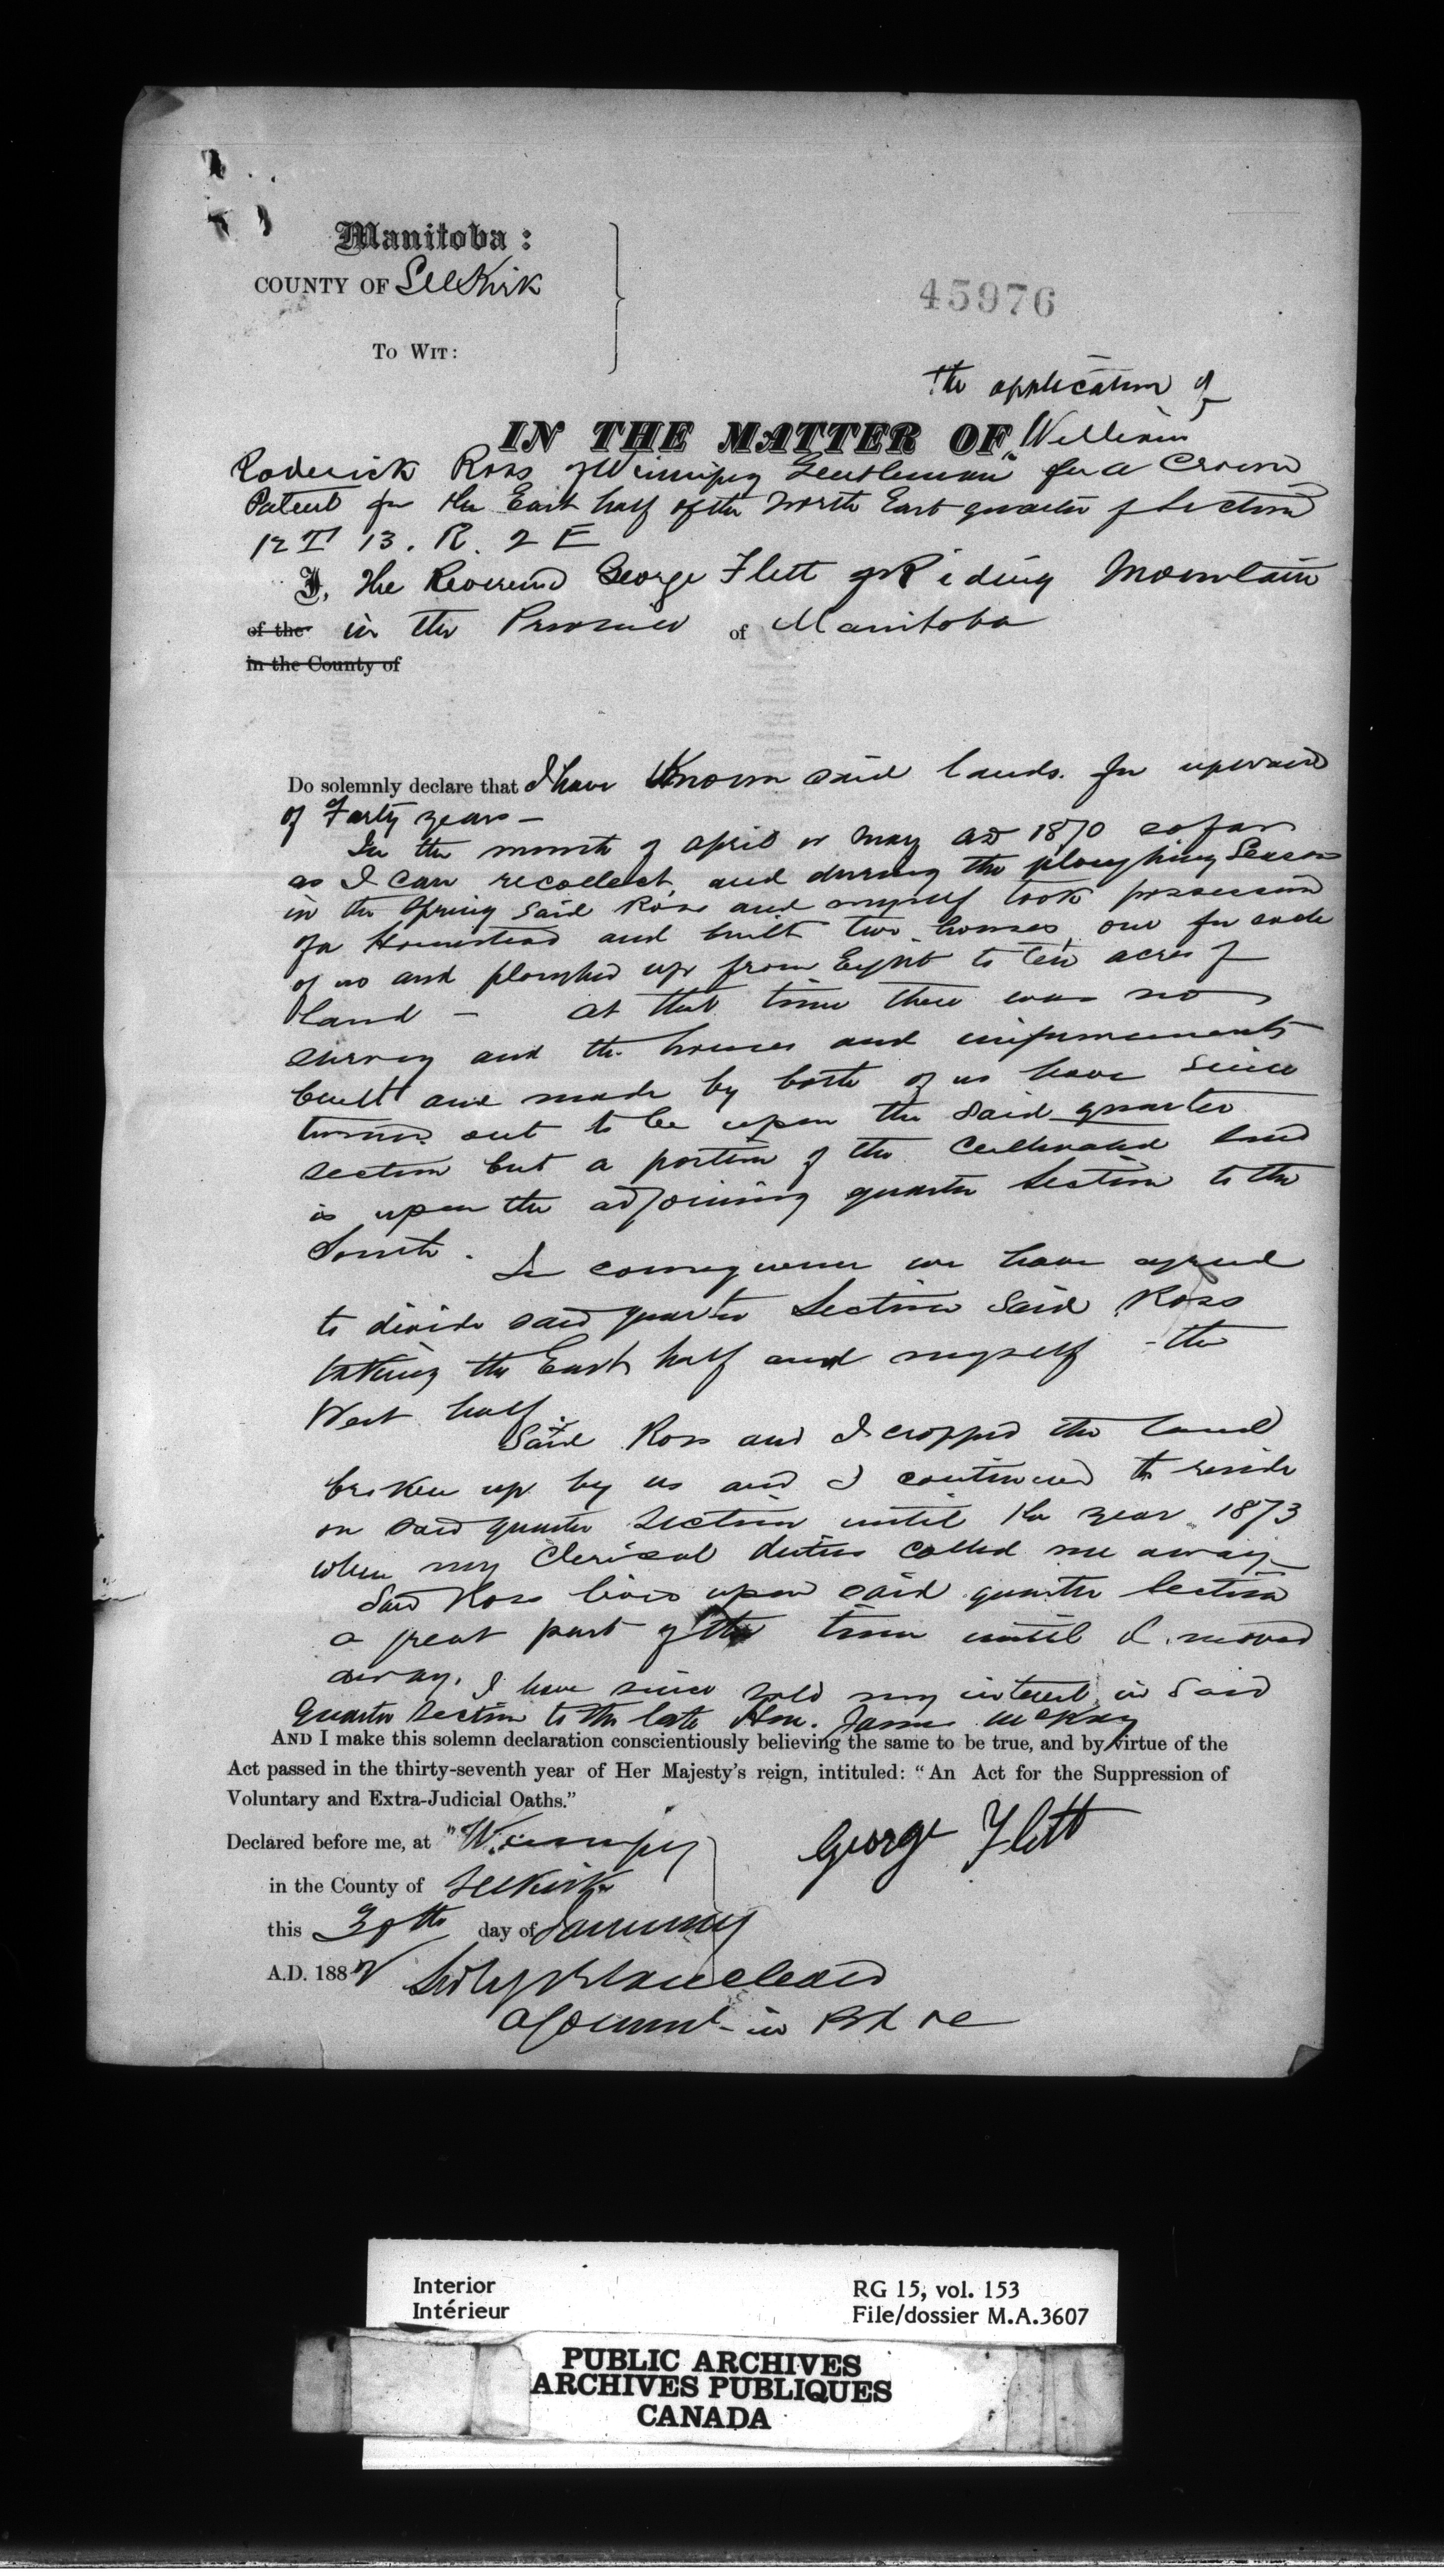 Manitoba:
COUNTY OF Selkirk
45976
TO WIT:
the application of
IN THE MATTER OF William
Roderick Ross of Winnipeg Gentleman for a Crown
Patent for the East half of the North East quarter of Section
12 T 13. R. 2 E
I, the Reverend George Flett of Riding Mountain
of the in the Province of Manitoba
in the County of
Do solemnly declare that I have known said lands for upward
of Forty years –
In the month of April or May AD 1870 so far
as I can recollect, and during the ploughing Season
in the Spring said Ross and myself took possession
of a Homestead and built two houses, one for each
of us and ploughed up from Eight to ten acres of
land – at that time there was no
survey and the houses and improvements
built and made by both of us have since
turned out to be upon the said quarter
section but a portion of the cultivated land
is upon the adjoining quarter Section to the
South. In consequence we have agreed
to divide said quarter Section said Ross
taking the East half and myself the
West half.
Said Ross and I cropped the land
broken up by us and I continued to reside
on said quarter Section until the year 1873
when my Clerical duties called me away –
Said Ross lived upon said quarter Section
a great part of the time until I moved
away. I have since sold my interest in said
Quarter Section to the late Hon. James McKay
AND I make this solemn declaration conscientiously believing the same to be true, and by virtue of the
Act passed in the thirty-seventh year of Her Majesty's reign, intituled: "An Act for the Suppression of
Voluntary and Extra-Judicial Oaths."
Declared before me, at Winnipeg
George Flett
in the County of Selkirk
this 30th day of January
A.D. 1882 Sedley Blanchard
A Comm in B R &c
Interior
Intérieur
RG 15, vol. 153
File/dossier M.A.3607
PUBLIC ARCHIVES
ARCHIVES PUBLIQUES
CANADA